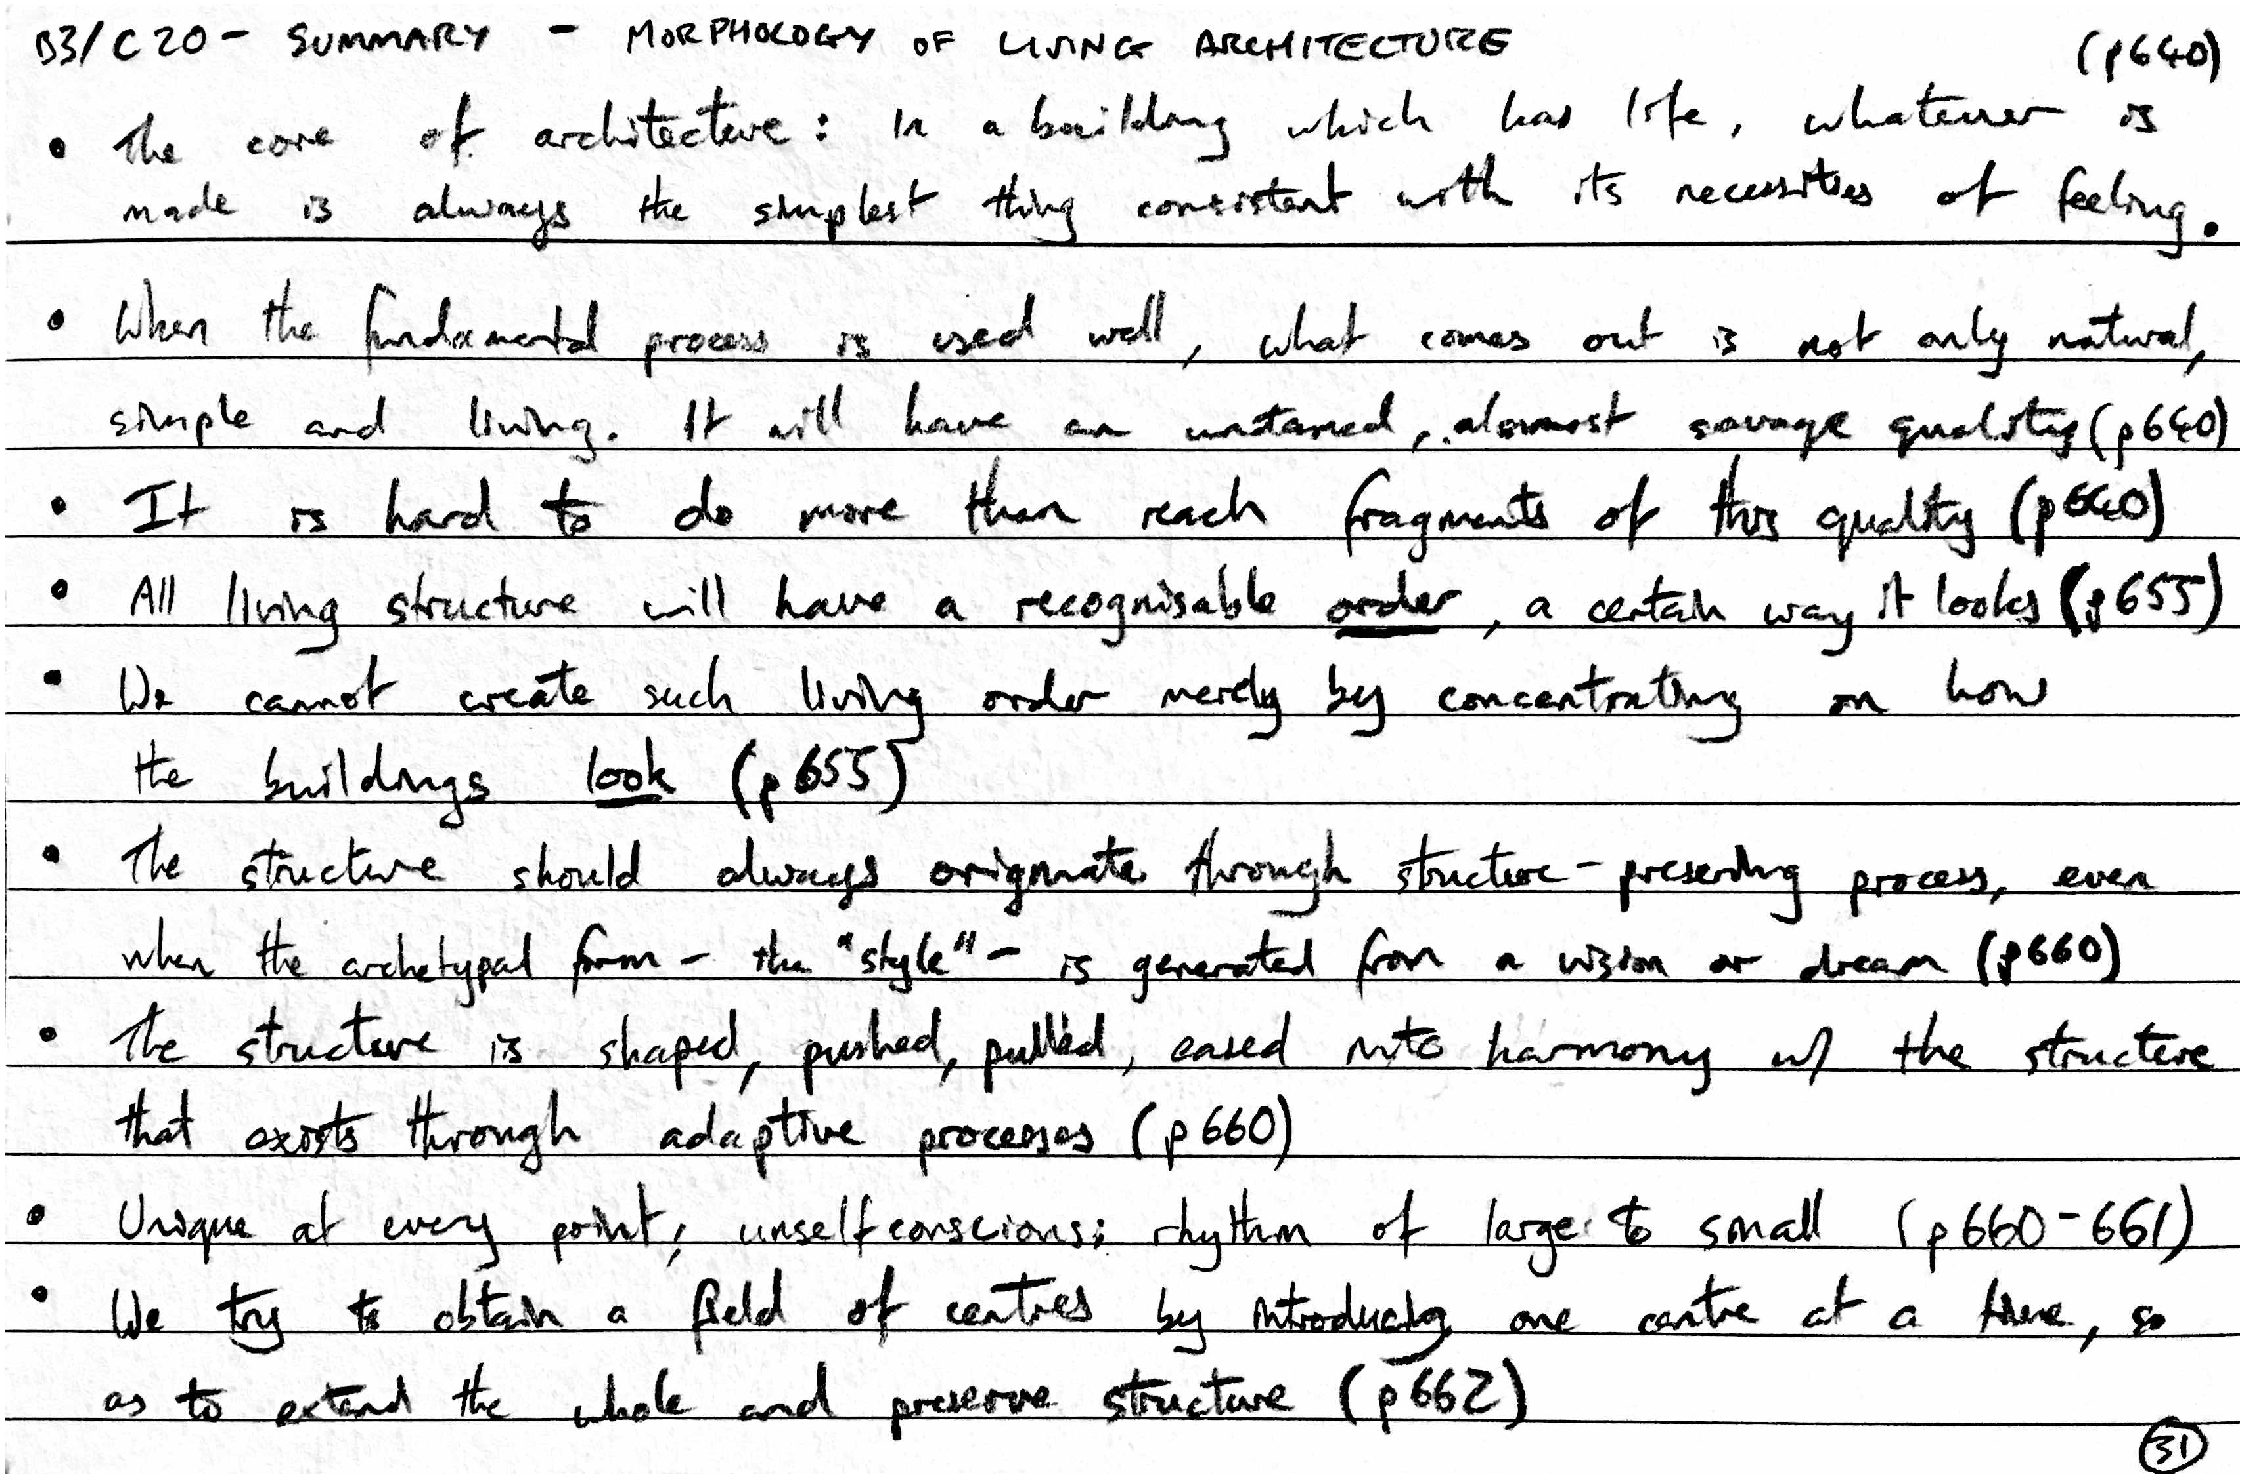 B3/C20 - SUMMARY - MORPHOLOGY OF LIVING ARCHITECTURE (p640)
• The core of architecture: In a building which has life, whatever is
made is always the simplest thing consistent with its necessities of feeling.
• When the fundamental process is used well, what comes out is not only natural,
simple and living. It will have an untamed, almost savage quality (p640)
• It is hard to do more than reach fragments of this quality (p640)
• All living structure will have a recognisable order, a certain way it looks (p655)
• We cannot create such living order merely by concentrating on how
the buildings look (p655)
• The structure should always originate through structure-preserving process, even
when the archetypal form - the "style" - is generated from a vision or dream (p660)
• The structure is shaped, pushed, pulled, eased into harmony w/ the structure
that exists through adaptive processes (p660)
• Unique at every point; unselfconscious; rhythm of large to small (p660-661)
• We try to obtain a field of centres by introducing one centre at a time, so
as to extend the whole and preserve structure (p662)
31